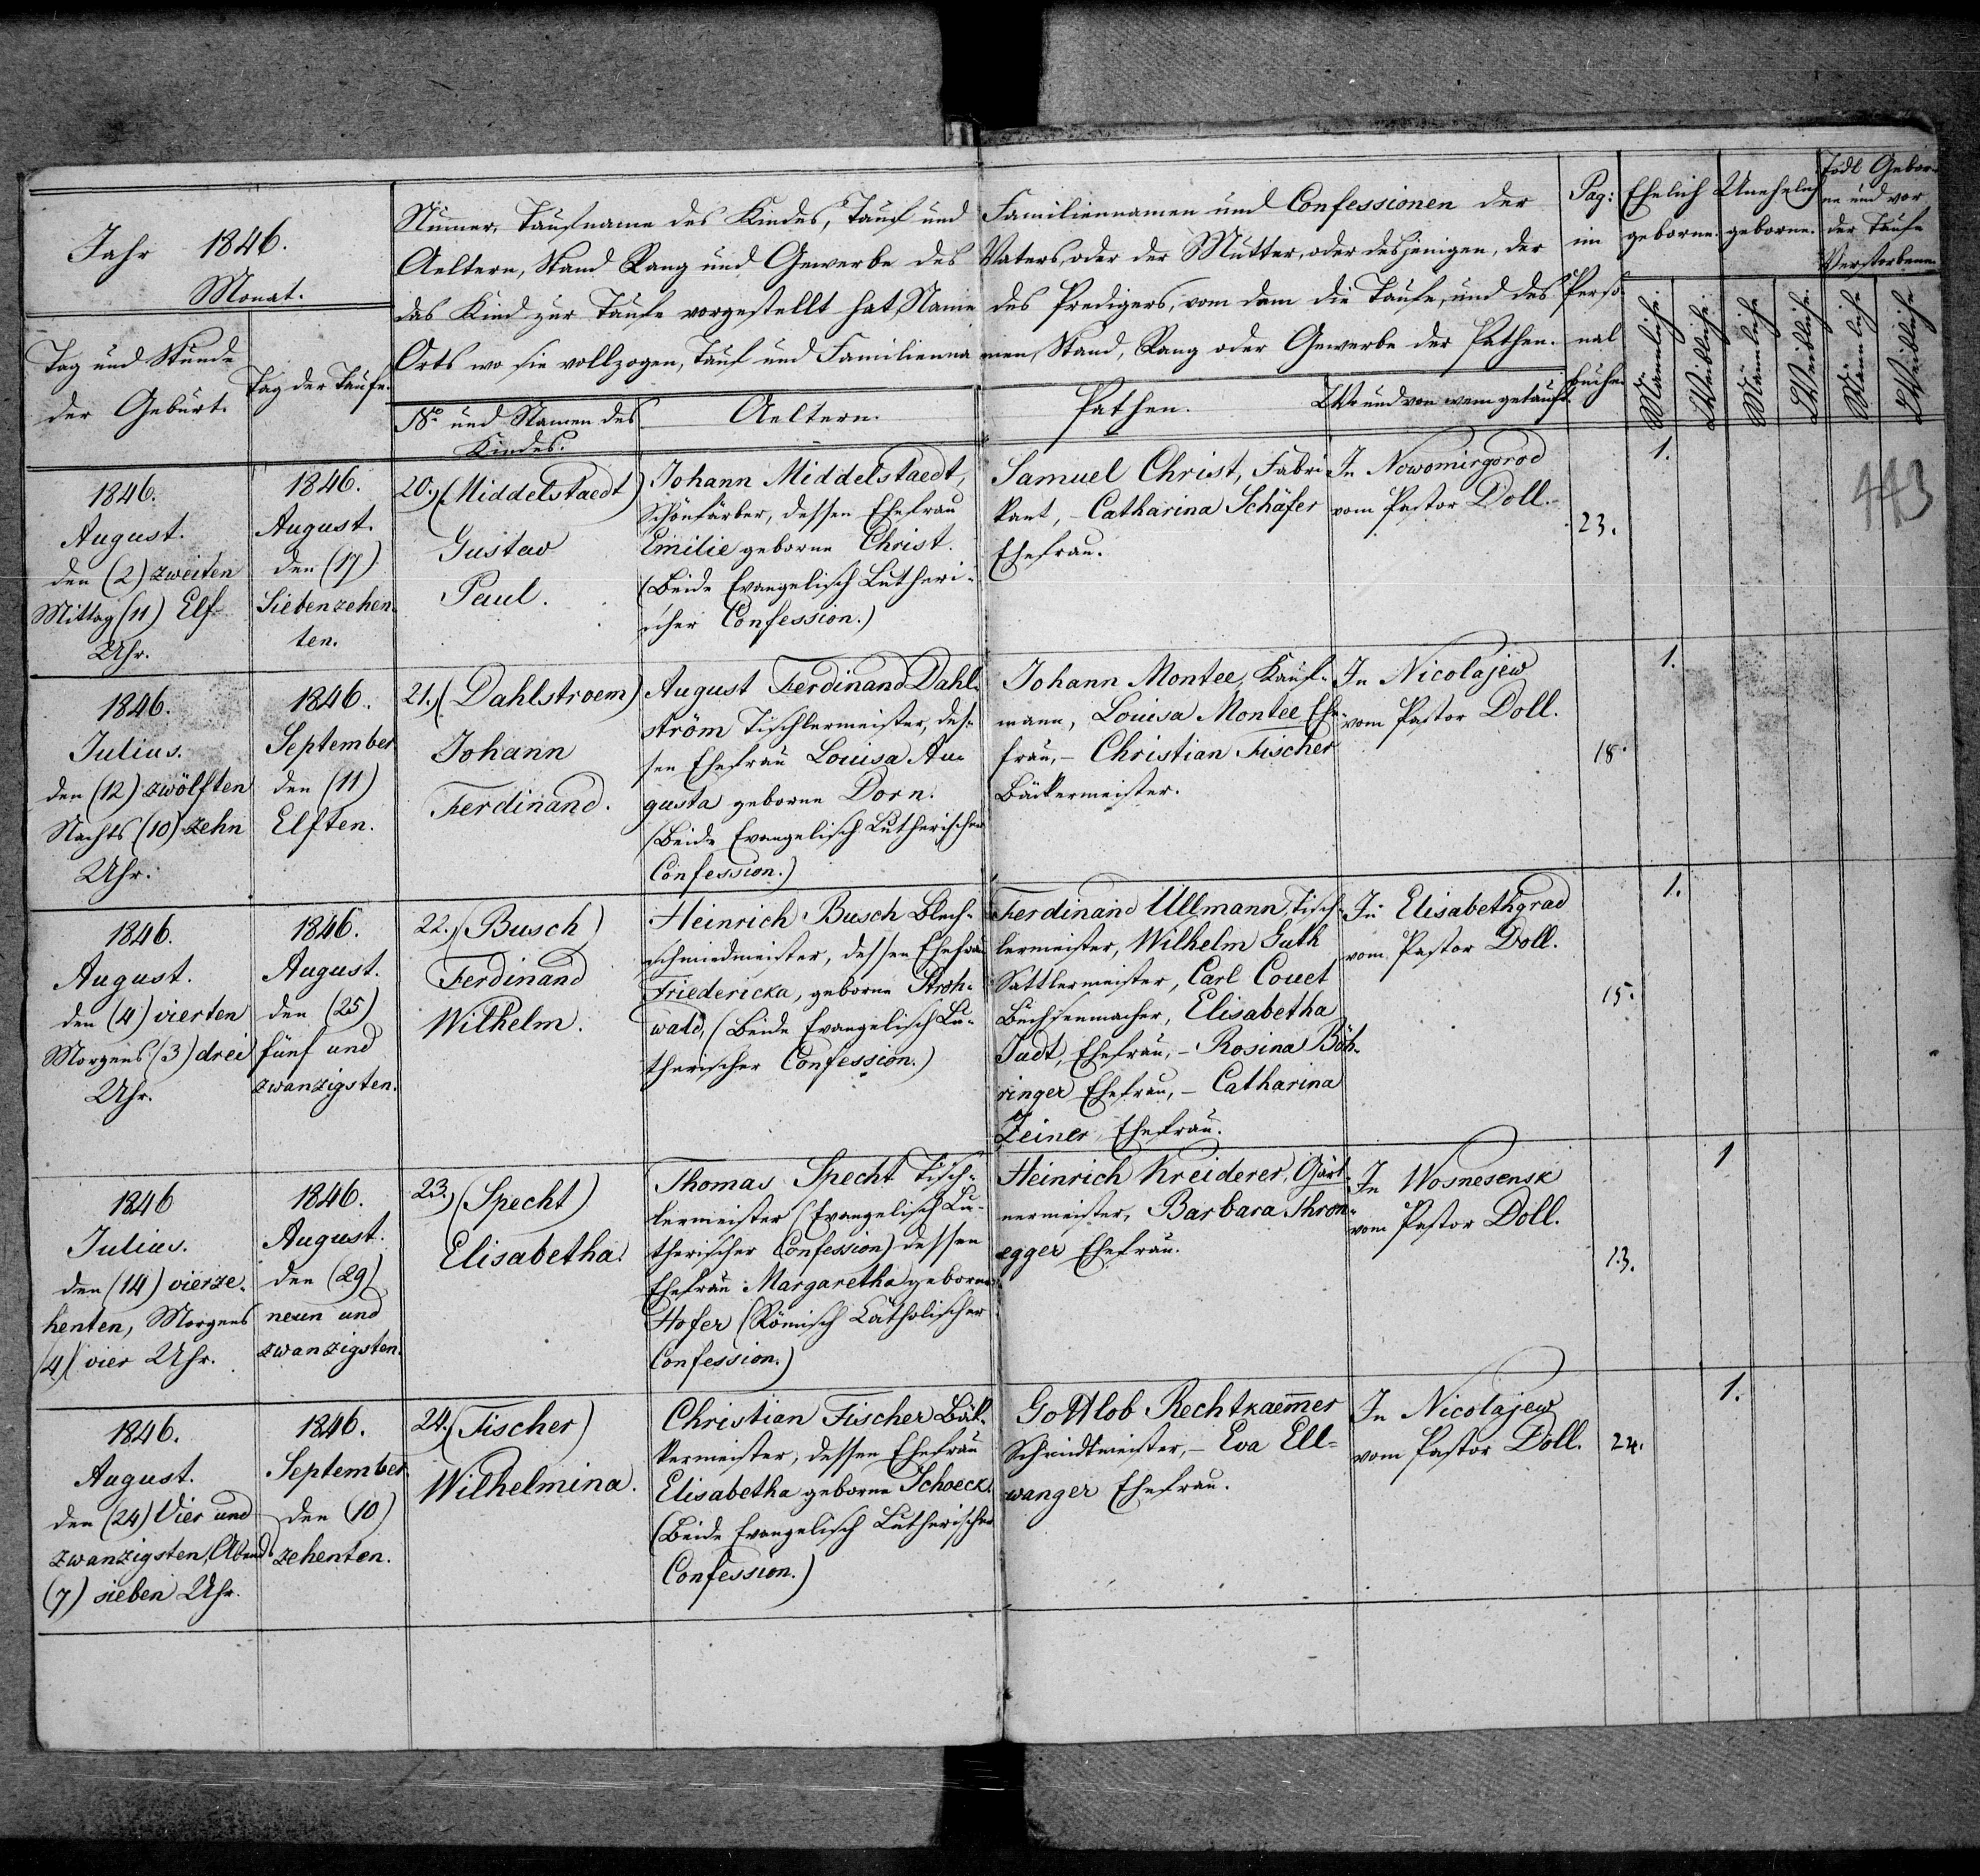 Jahr 1846.
Monat.
Tag und Stunde
der Geburt.
Tag der Taufe.
Numer, Taufname des Kindes, Tauf und Familiennamen und Confessionen der
Aeltern, Stand Rang und Gewerbe des Vaters, oder der Mutter, oder desjenigen, der
das Kind zur Taufe vorgestellt hat, Name des Predigers, vom dem die Taufe, und des
Orts wo sie vollzogen, Tauf und Familienna men, Stand, Rang oder Gewerbe der Pathen.
No und Namen des
Kindes.
Aeltern.
Pathen.
Wo und von wem getauft.
Pag:
im
Perso-
nal
buche.
Ehelich
geborne.
Unehelich
geborne.
Todt Gebor-
ne und vor
der Taufe
Verstorbene.
Männliche.
Weibliche.
Männliche
Weibliche.
Männliche
Weibliche
443
1846.
August.
den (2) zweiten
Mittag (11) Elf
Uhr.
1846.
August.
den (17)
Siebenzehen
ten.
20.) (Middelstaedt)
Gustav
Paul.
Johann Middelstaedt,
Schönfärber, dessen Ehefrau
Emilie geborne Christ.
(Beide Evangelisch Lutheri-
scher Confession.)
Samuel Christ, Fabri-
kant, - Catharina Schäfer
Ehefrau.
In Nowomirgorod
vom Pastor Doll.
23.
1.
1846.
Julius.
den (12) zwölften
Nachts (10) zehn
Uhr.
1846.
September
den (11)
Elften.
21.) (Dahlstroem)
Johann
Ferdinand.
August Ferdinand Dahl-
ström Tischlermeister, des-
sen Ehefrau Louisa Au-
gusta geborne Dorn.
(Beide Evangelisch Lutherischer
Confession.)
Johann Montee, Kauf-
mann, Louisa Montee Ehe-
frau, - Christian Fischer
Bäckermeister.
In Nicolajew
vom Pastor Doll.
18.
1.
1846.
August.
den (4) vierten
Morgens (3) drei
Uhr.
1846.
August.
den (25)
fünf und
zwanzigsten.
22.) (Busch)
Ferdinand
Wilhelm.
Heinrich Busch Blech-
schmiedmeister, dessen Ehefrau
Friedericka, geborne Stroh-
wald, (Beide Evangelisch Lu-
therischer Confession.)
Ferdinand Ullmann, Tisch-
lermeister, Wilhelm Guth
Sattlermeister, Carl Couet
Büchsenmacher, Elisabetha
Judt, Ehefrau, - Rosina Böh-
ringer Ehefrau, - Catharina
Zeiner, Ehefrau.
In Elisabethgrad
vom Pastor Doll.
15.
1.
1846
Julius.
den (14) vierze-
henten, Morgens
(4) vier Uhr.
1846.
August.
den (29)
neun und
zwanzigsten.
23.) (Specht)
Elisabetha.
Thomas Specht Tisch-
lermeister (Evangelisch Lu-
therischer Confession) dessen
Ehefrau Margaretha geborne
Hofer (Römisch Catholischer
Confession.)
Heinrich Kreiderer, Gärt-
nermeister, Barbara Thron-
egger Ehefrau.
In Wosnesensk
vom Pastor Doll.
13.
1
1846.
August.
den (24) Vier und
zwanzigsten, Abends
(7) sieben Uhr.
1846.
September
den (10)
zehenten.
24.) (Fischer)
Wilhelmina.
Christian Fischer Bäk-
kermeister, dessen Ehefrau
Elisabetha geborne Schoeck.
(Beide Evangelisch Lutherischer
Confession.)
Gottlob Rechtkaem̄er
Schmidtmeister, - Eva Ell-
wanger Ehefrau.
In Nicolajew
vom Pastor Doll.
24.
1.